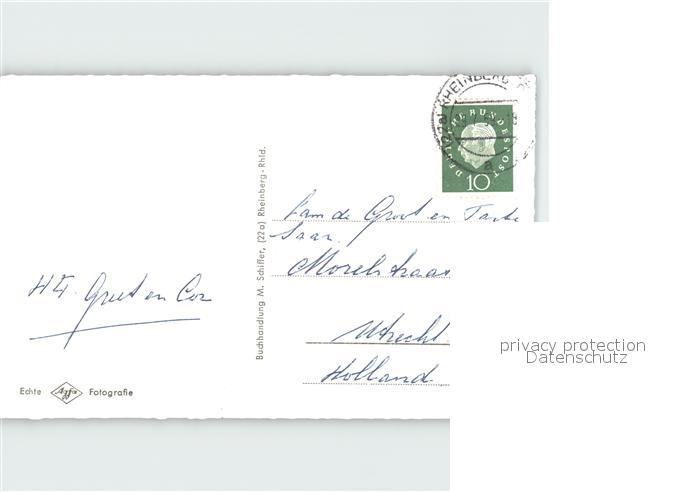 RHEINBERG
(22a)
a
DEUTSCHE BUNDESPOST
10
Fam de Groot en Tante
Saar.
Morelstraat
Utrecht.
Holland
Htg. Greet en Cor
Buchhandlung M. Schiffer, (22a) Rheinberg-Rhld.
Echte Agfa Fotografie
privacy protection
Datenschutz